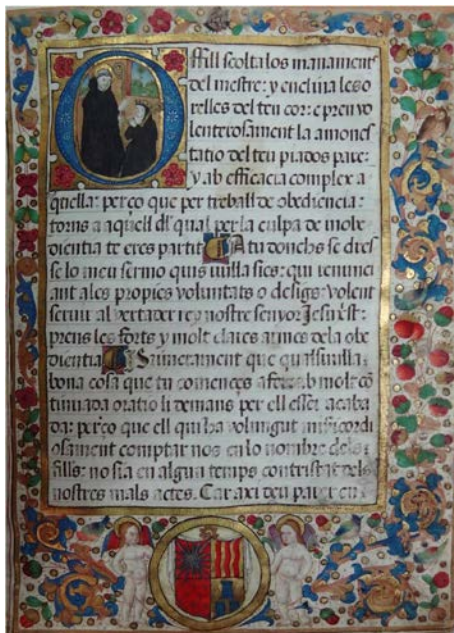 O ffill scolta los manament
del mestre: y enclina les o
relles del teu cor: e pren vo
lenterosament la amones
tatio del teu piados pare:
y ab efficacia complex a
quella: perço que per treball de obediencia:
torns a aquell dl qual per la culpa de inobe
dientia te eres partit A tu donchs se dres
se lo meu sermo quisvulla sies: qui renunci
ant a les propies voluntats o desigs: volent
servir al vertader rey nostre senyor Jesucrist:
prens les forts y molt clares armes de la obe
dientia Primerament que qualsivulla
bona cosa que tu comences a fer: ab molt cō
tinuada oratio li demans per ell esser acaba
da: perço que ell qui ha volungut misericordi
osament comptar nos en lo nombre dels
fills: no sia en algun temps contristat dels
nostres mals actes. Car axi deu parer en